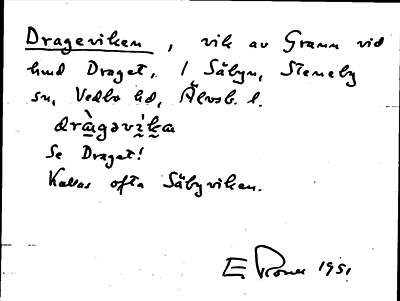 Drageviken, vik av Grann vid
hmd Draget, / Säbyn, Steneby
sn, Vedbo hd, Älvsb. l.
dràgəvi̇̀ka
Se Draget!
Kallas ofta Säbyviken.
E 1951